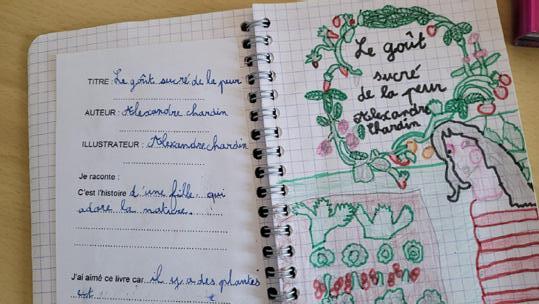 TITRE : Le goût sucré de la peur
AUTEUR : Alexandre chardin
ILLUSTRATEUR : Alexandre chardin
Je raconte :
C'est l'histoire d'une fille qui
adore la
J'ai aimé ce livre car il y a des plantes
Le goût
sucré
de la peur
Alexandre
Chardin